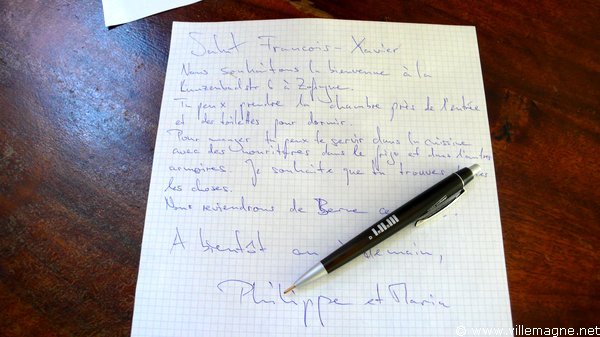 Salut Francois-Xavier
Nous souhaitons la bienvenue à la
6 à Zofingue.
Tu peux prendre la chambre près de l'entrée
et des toilettes pour dormir.
Pour manger tu peux te servir dans la cuisine
avec des nourritures dans le frigo et dans
armoires. Je souhaite que tu trouves
les choses.
Nous reviendrons de Berne ce
A bientôt ou à demain,
Philippe et Maria
© www.villemagne.net